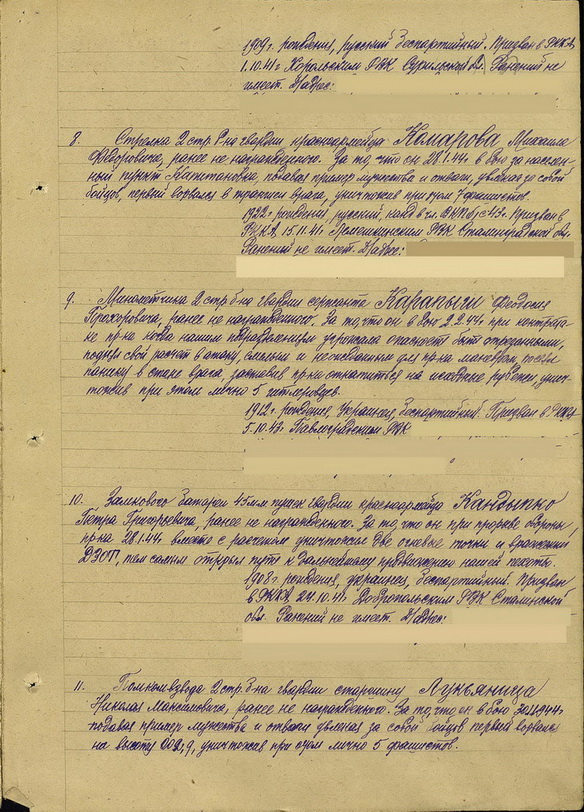 1909г. рождения, русский, беспартийный. Призван в РККА
1.10.41г Хорольским РВК обл. Ранений не
имеет. Надрес:
8. Стрелка 2 стр. б-на гвардии красноармейца Комарова Михаила
Федоровича, ранее не награжденного. За то, что он 28.1.44г. в бою за населен-
ный пункт Капитановка подавая пример мужества и отваги, увлекая за собой
бойцов, первый ворвался в траншеи врага, уничтожив при этом 7 фашистов.
1922г. рождения, русский, канд. в чл. ВКП(б) с 43г. Призван в
РККА 15.11.41г. РВК Сталинградской обл.
Ранений не имеет. Надрес:
9. Минометчика 2 стр. б-на гвардии сержанта Феодосия
Прохоровича, ранее не награжденного. За то, что он в бою 2.2.44г. при контрата-
ке пр-ка когда нашим подразделениям угрожала опасность быть отрезанными,
поднял свой расчет в атаку, смелым и неожиданным для пр-ка маневром, посеял
панику в стане врага, заставив пр-ка откатиться на исходные рубежи, унич-
тожив при этом лично 5 гитлеровцев.
1912г. рождения, Украинец, беспартийный. Призван в РККА
5.10.43г. Павлоградским РВК
10. Замкового батареи 45мм пушек гвардии красноармейца
Петра Григорьевича, ранее не награжденного. За то, что он при прорыве обороны
пр-ка 28.1.44г. вместе с расчетом уничтожил две огневые точки и вражеский
ДЗОТ, тем самым открыл путь к дальнейшему продвижению нашей пехоты.
1908г. рождения, украинец, беспартийный. Призван
в РККА 24.10.41г. Добропольским РВК Сталинской
обл. Ранений не имеет. Надрес:
11. Помкомвзвода 2 стр. б-на гвардии старшину Лукьянца
Николая Максимовича, ранее не награжденного. За то, что он в бою 30.1.44г.
подавая пример мужества и отваги увлекая за собой бойцов первый ворвался
на высоту уничтожив при этом лично 5 фашистов.